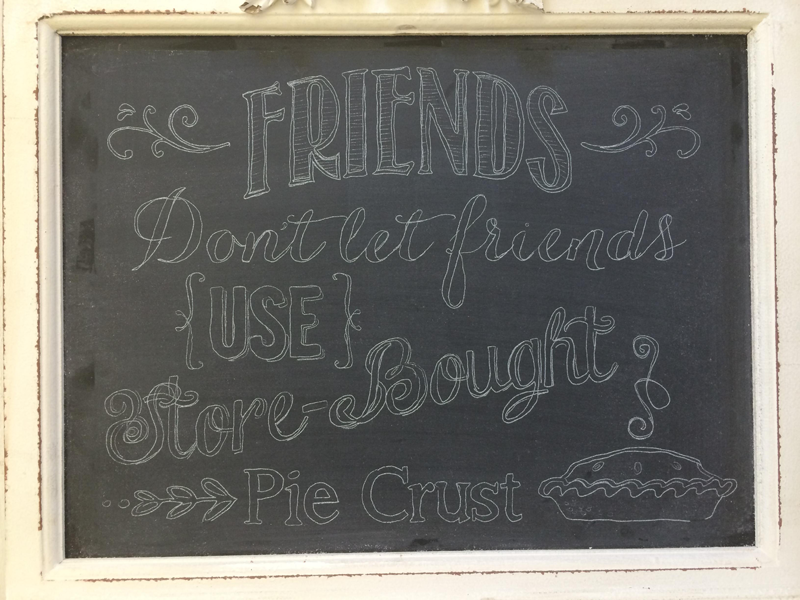 FRIENDS
Don't let friends
{USE}
Store-Bought
Pie Crust